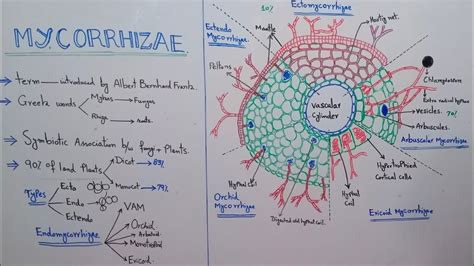 MYCORRHIZAE
Term → introduced by Albert Bernhard Frank.
Greek words → Mykes → Fungus
Rhiza → roots.
Symbiotic Association b/w fungi + Plants.
90% of land Plants → Dicot → 83%
Monocot → 79%
Types → Ecto
Endo
Ectendo
Endomycorrhizae → VAM
Orchid
Arbutoid
Monotropoid
Ericoid
Ectendo
Mycorrhizae
10%
Mantle
Ectomycorrhizae
Hartig net.
Peltons
Vascular
Cylinder
Chlamydospore
Extra radical hyphae
Vesicles. 70%
Arbuscules.
Arbuscular Mycorrhizae
Hypertrophied
Cortical cells
Hyphal coil
Orchid
Mycorrhizae
Digested old hyphal coil.
Hyphal
Coil
Ericoid Mycorrhizae